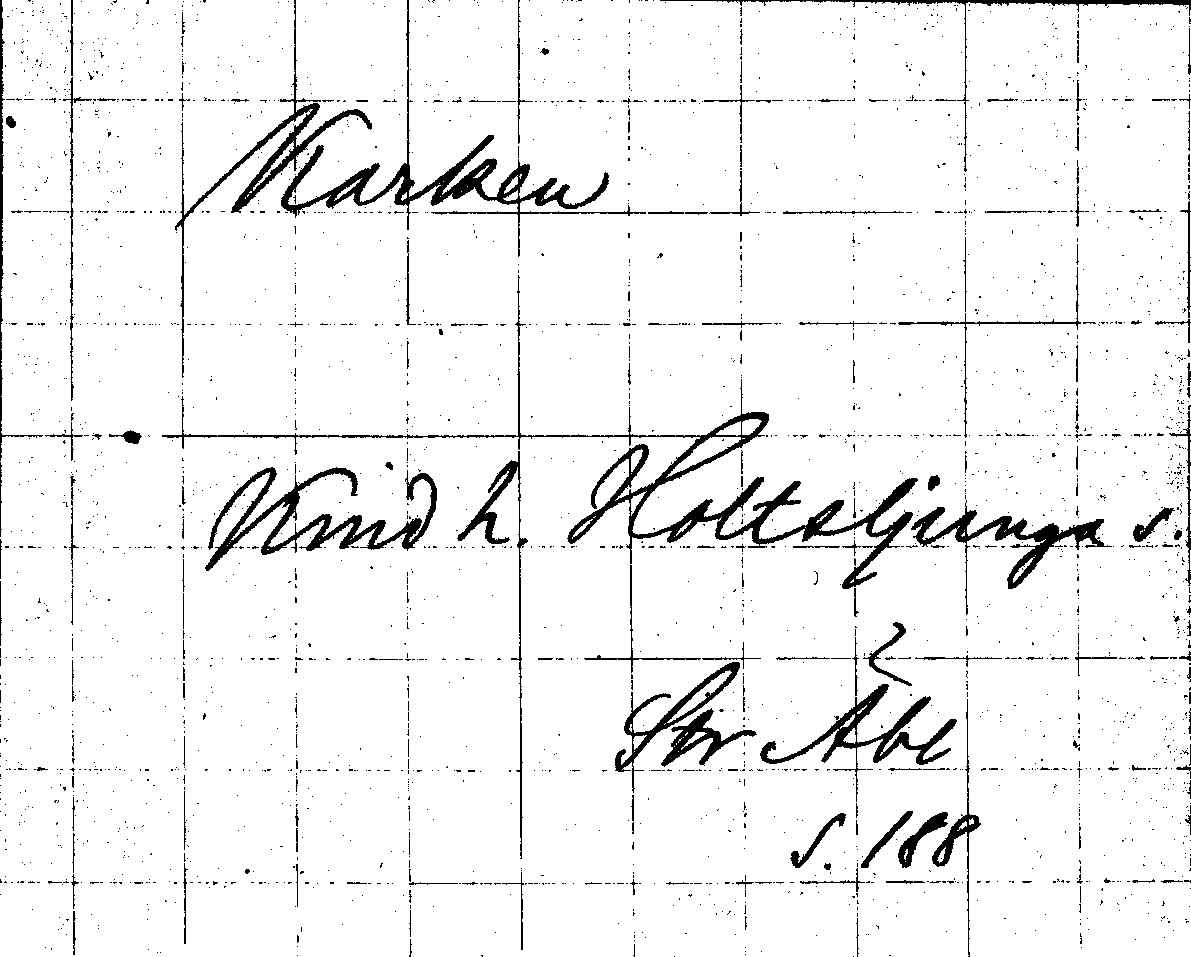 Karken
Kind h. Holtsljunga s.
Str
s. 188